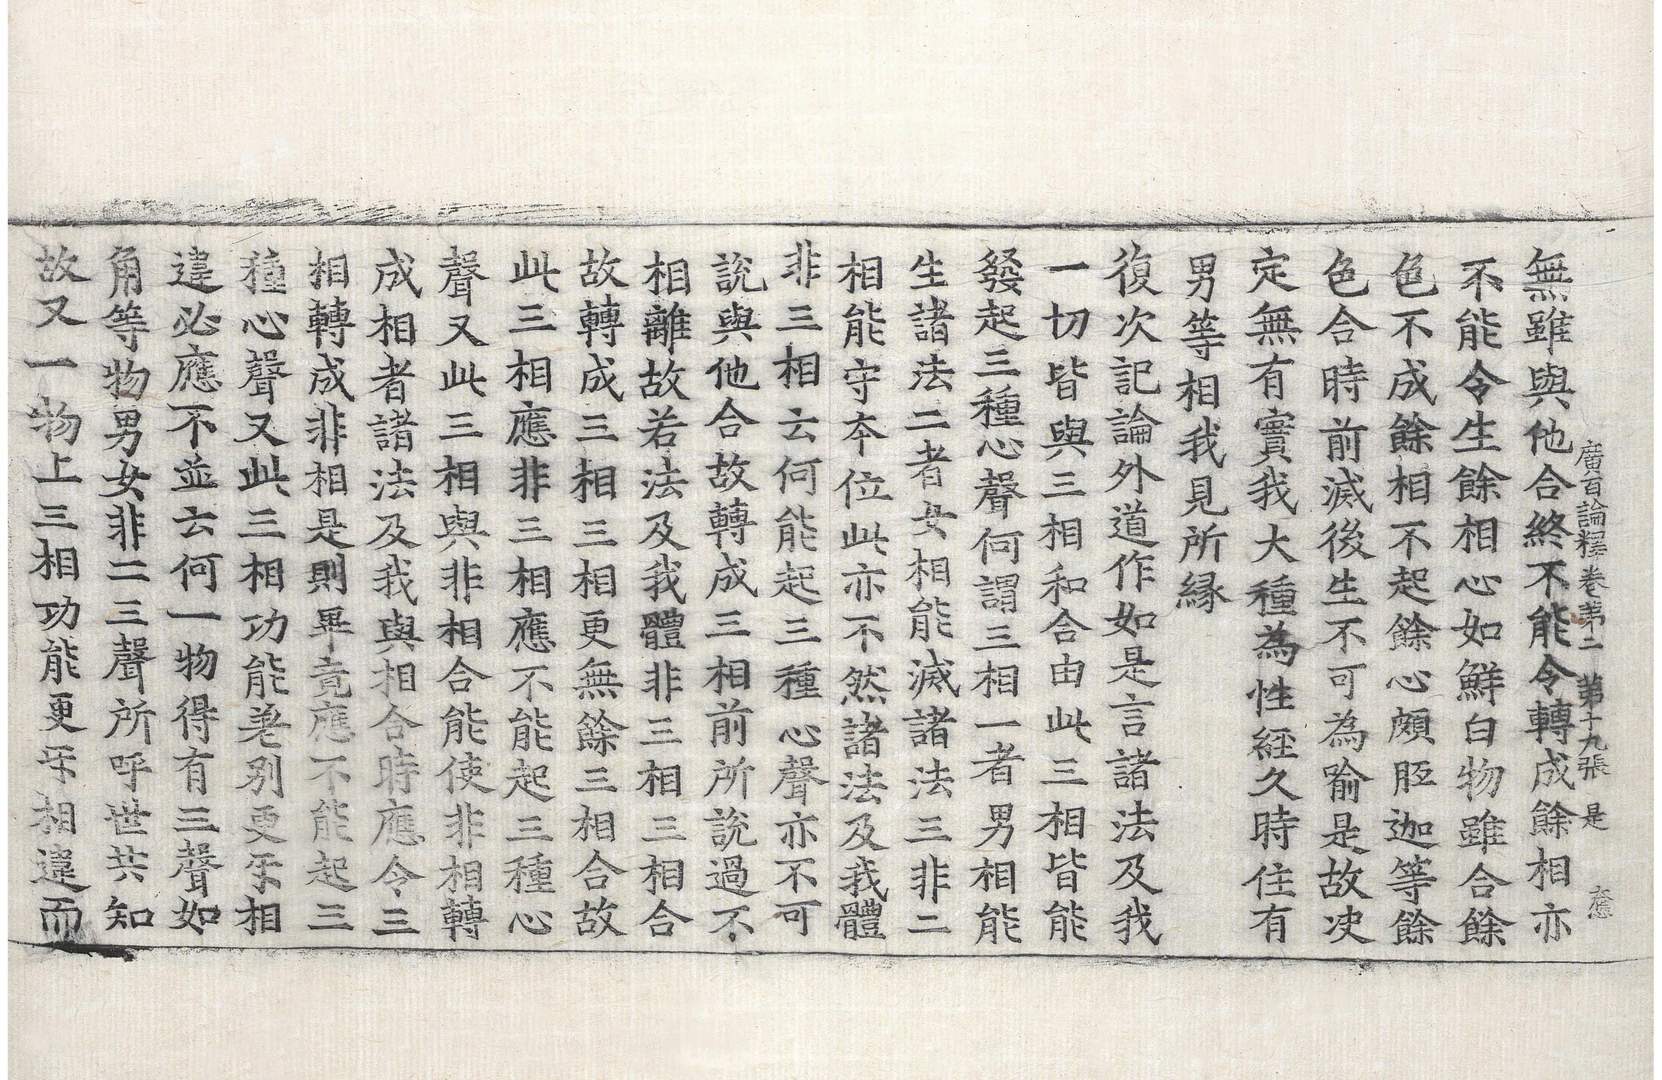 廣百論釋卷第二 第十九張 是 應
無雖與他合終不能令轉成餘相亦
不能令生餘相心如鮮白物雖合餘
色不成餘相不起餘心頗胝迦等餘
色合時前滅後生不可為喻是故決
定無有實我大種為性經久時住有
男等相我見所緣
復次記論外道作如是言諸法及我
一切皆與三相和合由此三相皆能
發起三種心聲何謂三相一者男相能
生諸法二者女相能滅諸法三非二
相能守本位此亦不然諸法及我體
非三相云何能起三種心聲亦不可
說與他合故轉成三相前所說過不
相離故若法及我體非三相三相合
故轉成三相三相更無餘三相合故
此三相應非三相應不能起三種心
聲又此三相與非相合能使非相轉
成相者諸法及我與相合時應令三
相轉成非相是則畢竟應不能起三
種心聲又此三相功能差別更互相
違必應不並云何一物得有三聲如
角等物男女非二三聲所呼世共知
故又一物上三相功能更互相違而